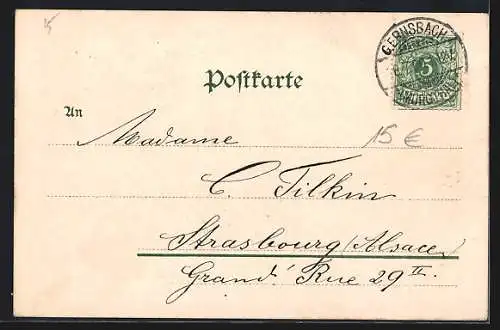 GERNSBACH
(MURGTHAL)
5
Postkarte
An
15 €
Madame
C. Tilkin
Strasbourg (Alsace)
Grand' Rue 29 II.